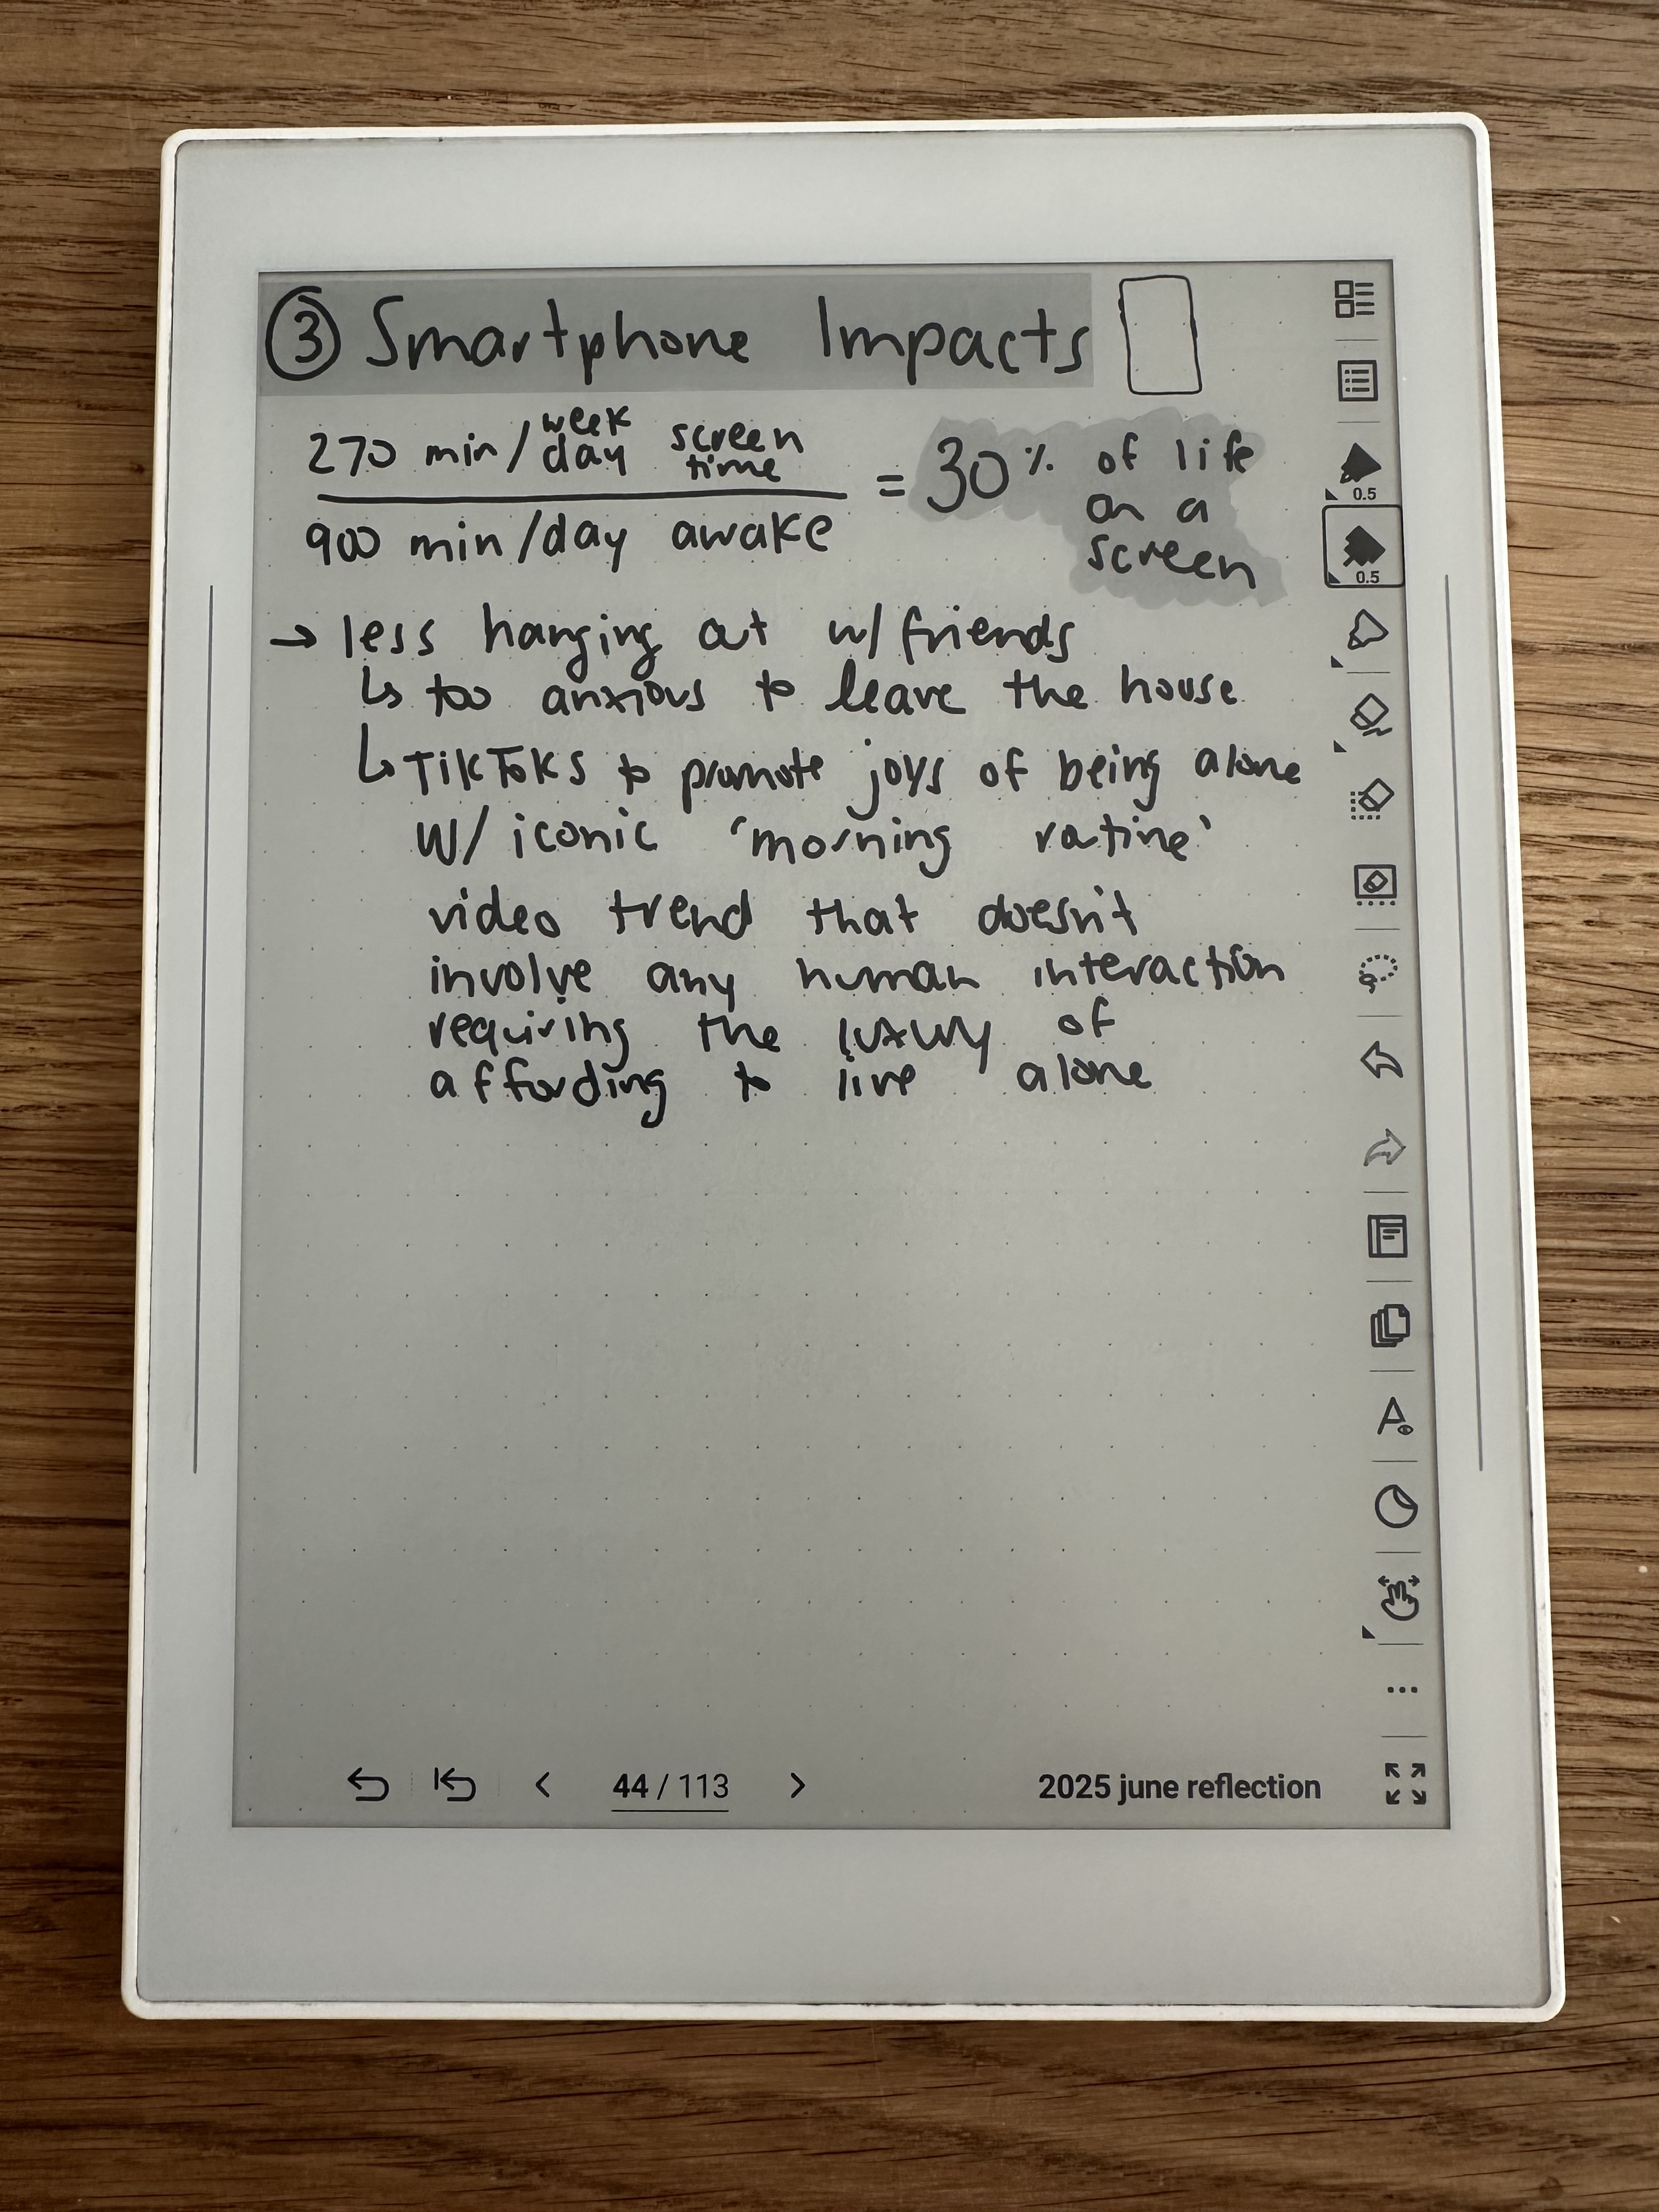 ③ Smartphone Impacts
270 min/weekday screen time
900 min/day awake
= 30% of life
on a
screen
→ less hanging out w/ friends
↳ too anxious to leave the house
↳ TikToks to promote joys of being alone
w/ iconic 'morning routine'
video trend that doesn't
involve any human interaction
requiring the luxury of
affording to live alone
0.5
0.5
44 / 113
2025 june reflection